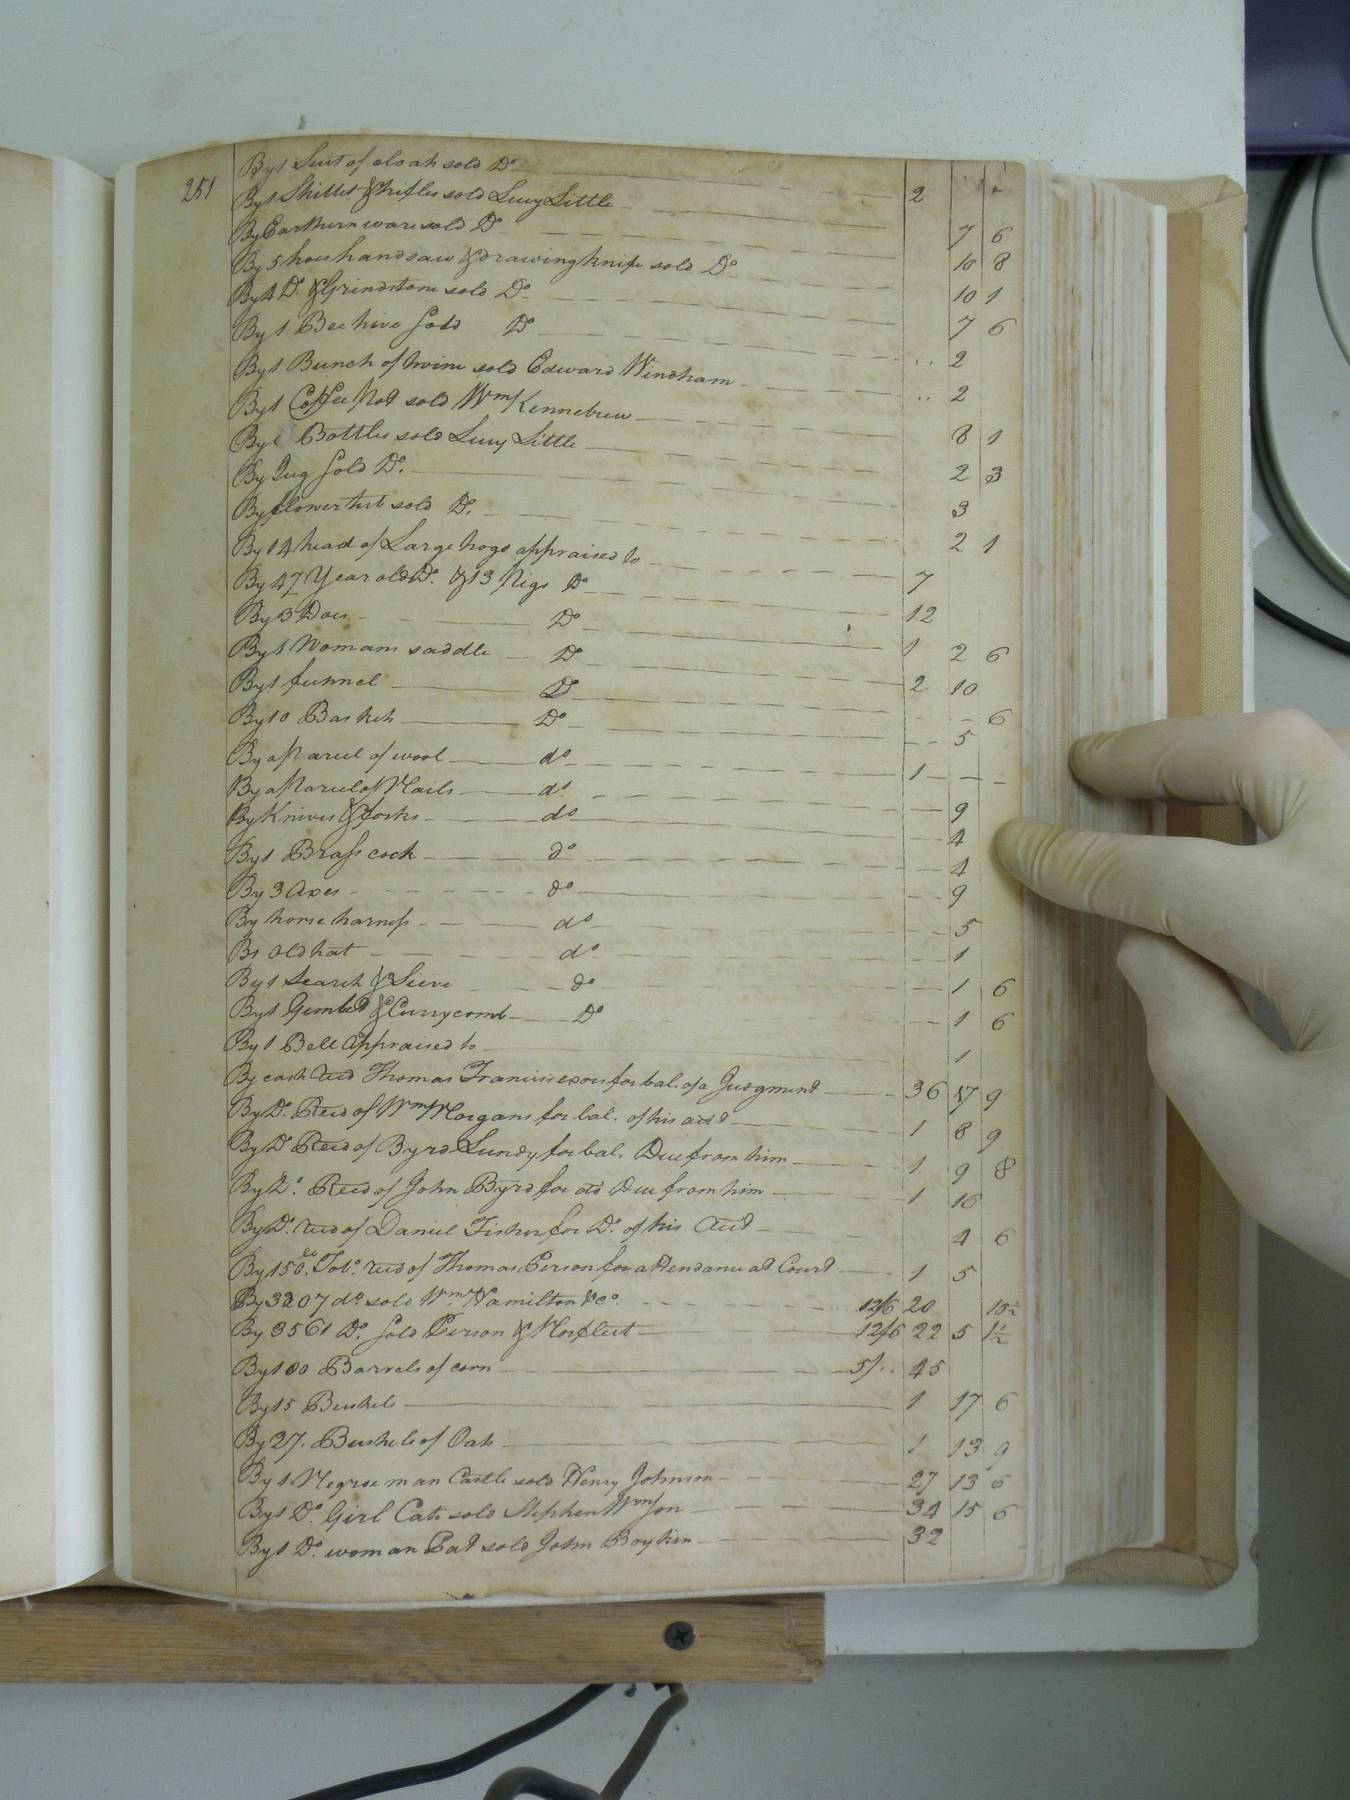 251
By 1 Suit of cloah sold Do 2
By 1 Skillet & trifles sold Lucy Little 7 6
By Earthern ware sold Do 10 8
By 5 hoes handsaw & drawing knife sold Do 10 1
By 4 Do. & Grindstone sold Do 7 6
By 1 Bee hive Sold Do 2
By 1 Bunch of twine sold Edward Windham 2
By 1 Coffee Pot sold Wm Kennebrew 8 1
By Bottles sold Lucy Little 2 3
By Jug Sold Do. 3
By flower tub sold Do. 2 1
By 14 head of Large hogs appraised to 7
By 47 Year old Do. & 13 Pigs Do 12
By 3 Do Do 1 2 6
By 1 Womans saddle Do 2 10
By 1 funnel Do 6
By 10 Baskets Do 5
By a Parcel of wool do 1
By a Parcel of Nails do 9
By Knives & forks do 4
By 1 Brass cock do 4
By 3 Axes do 9
By horse harness do 5
By Old hat do 1
By 1 Search & Sieve do 1 6
By 1 Gimbled & Currycomb Do 1 6
By 1 Bell Appraised to 1
By cash recd Thomas Francis exors for bal. of a Judgment 36 17 9
By Do. Recd of Wm Morgans for bal. of his acct 1 8 9
By Do Recd of Byrd Lundy for bal. Due from him 1 9 8
By Do. Recd of John Byrd for do Due from him 1 16
By Do. recd of Daniel Fisher for Do. of his Acct 4 6
By 150. Tobo. recd of Thomas Person for attendance at Court 1 5
By 3207 do sold Wm. Hamilton & Co. 12/6 20 10½
By 3561 Do. Sold Person & Norfleet 12/6 22 5 1½
By 180 Barrels of corn 5/.. 45
By 15 Bushels 1 17 6
By 27. Bushels of Oats 1 13 9
By 1 Negroe man Castle sold Henry Johnson 27 13 6
By 1 Do. Girl Cate sold Stephen Wmson 34 15 6
By 1 Do. woman Pat sold John Boykin 32